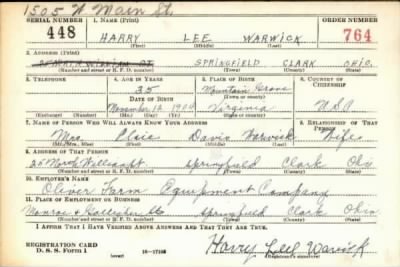 1505 W. Main St.
SERIAL NUMBER 1. NAME (Print) ORDER NUMBER
448 HARRY LEE WARWICK 764
(First) (Middle) (Last)
2. ADDRESS (Print)
SPRINGFIELD CLARK OHIO.
(Number and street or R. F. D. number) (Town) (County) (State)
3. TELEPHONE 4. AGE IN YEARS 5. PLACE OF BIRTH 6. COUNTRY OF CITIZENSHIP
35 Mountain Grove
DATE OF BIRTH (Town or county)
November 12 1904 Virginia U.S.A.
(Exchange) (Number) (Mo.) (Day) (Yr.) (State or country)
7. NAME OF PERSON WHO WILL ALWAYS KNOW YOUR ADDRESS 8. RELATIONSHIP OF THAT PERSON
Mrs. Elsie Davis Warwick Wife
(Mr., Mrs., Miss) (First) (Middle) (Last)
9. ADDRESS OF THAT PERSON
Springfield Clark Ohio
(Number and street or R. F. D. number) (Town) (County) (State)
10. EMPLOYER'S NAME
Oliver Farm Equipment Company
11. PLACE OF EMPLOYMENT OR BUSINESS
Monroe & Gallagher Sts Springfield Clark Ohio
(Number and street or R. F. D. number) (Town) (County) (State)
I AFFIRM THAT I HAVE VERIFIED ABOVE ANSWERS AND THAT THEY ARE TRUE.
REGISTRATION CARD
D. S. S. Form 1 (over) 16-17105 Harry Lee Warwick
(Registrant's signature)